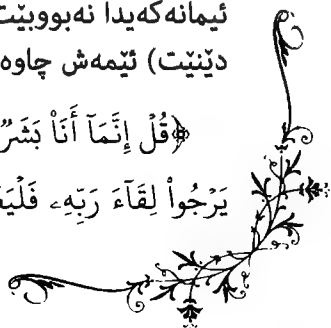 ئیمانەکەیدا نەبووبێت
دێنێت) ئێمەش چاوە
﴿قُلْ إِنَّمَآ أَنَا۠ بَشَرٌ
يَرْجُوا۟ لِقَآءَ رَبِّهِۦ